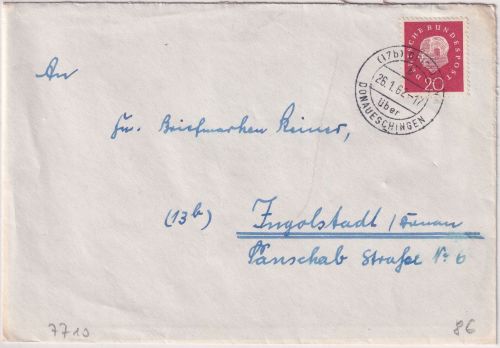 DEUTSCHE BUNDESPOST
20
(17b)
26.1.62-17
über
DONAUESCHINGEN
An
Fa. Briefmarken Keiner,
(13b) Ingolstadt /Donau
Panschab Straße No 6
7710
86